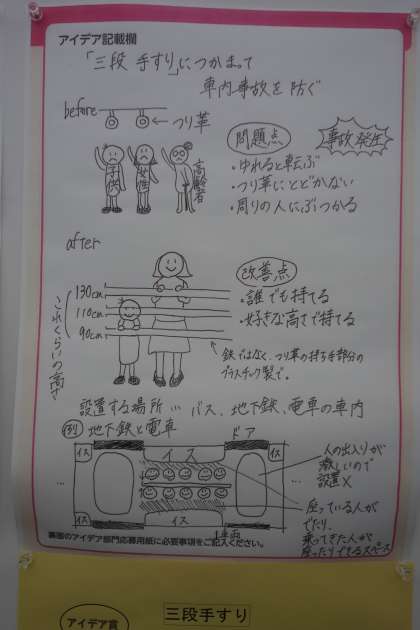 アイデア記載欄
「三段 手すり」につかまって
車内事故を防ぐ
before
← つり革
問題点
事故発生
子供
女性
高齢者
・ゆれると転ぶ
・つり革にとどかない
・周りの人にぶつかる
after
改善点
・誰でも持てる
・好きな高さで持てる
130cm
110cm
90cm
これくらいの高さ
鉄ではなく、つり革の持ち手部分の
プラスチック製で。
設置する場所 … バス、地下鉄、電車の車内
例 地下鉄と電車
ドア
イス
イス
イス
人の出入りが
激しいので
設置×
…
…
座っている人が
でたり、
乗ってきた人が
座ったりできるスペース
イス
イス
イス
裏面のアイデア部門応募用紙に必要事項をご記入ください。
アイデア賞
三段手すり